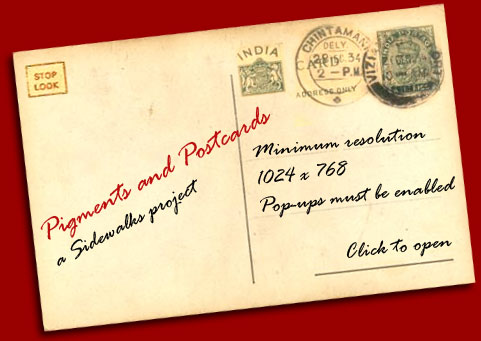 STOP
LOOK
INDIA
CHINTAMANI
DELY.
34
2 - P.M.
ADDRESS ONLY
Pigments and Postcards
a Sidewalks project
Minimum resolution
1024 x 768
Pop-ups must be enabled
Click to open